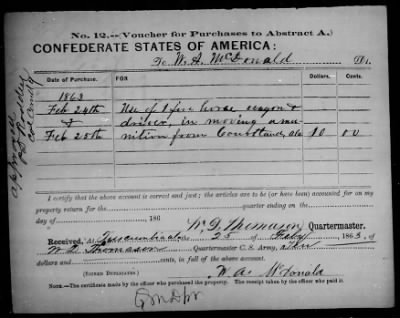 No. 12.—(Voucher for Purchases to Abstract A.)
CONFEDERATE STATES OF AMERICA:
To W. A. McDonald Dr.
Date of Purchase. FOR Dollars. Cents.
1863
Feb 24th Use of 1 five horse wagon &
& driver, in moving ammu-
Feb 25th nition from Courtland, Ala 10 00
Approved
Col Comdg
I certify that the above account is correct and just; the articles are to be (or have been) accounted for on my
property return for the quarter ending on the
day of , 186
W. D. Thomason Quartermaster.
Received, at Tuscumbia Ala 25 of Feby 1863, of
W. D. Thomason Quartermaster C. S. Army, Ten
dollars and cents, in full of the above account.
(SIGNED DUPLICATES.) W. A. McDonald
NOTE.—The certificate made by the officer who purchased the property. The receipt taken by the officer who paid it.